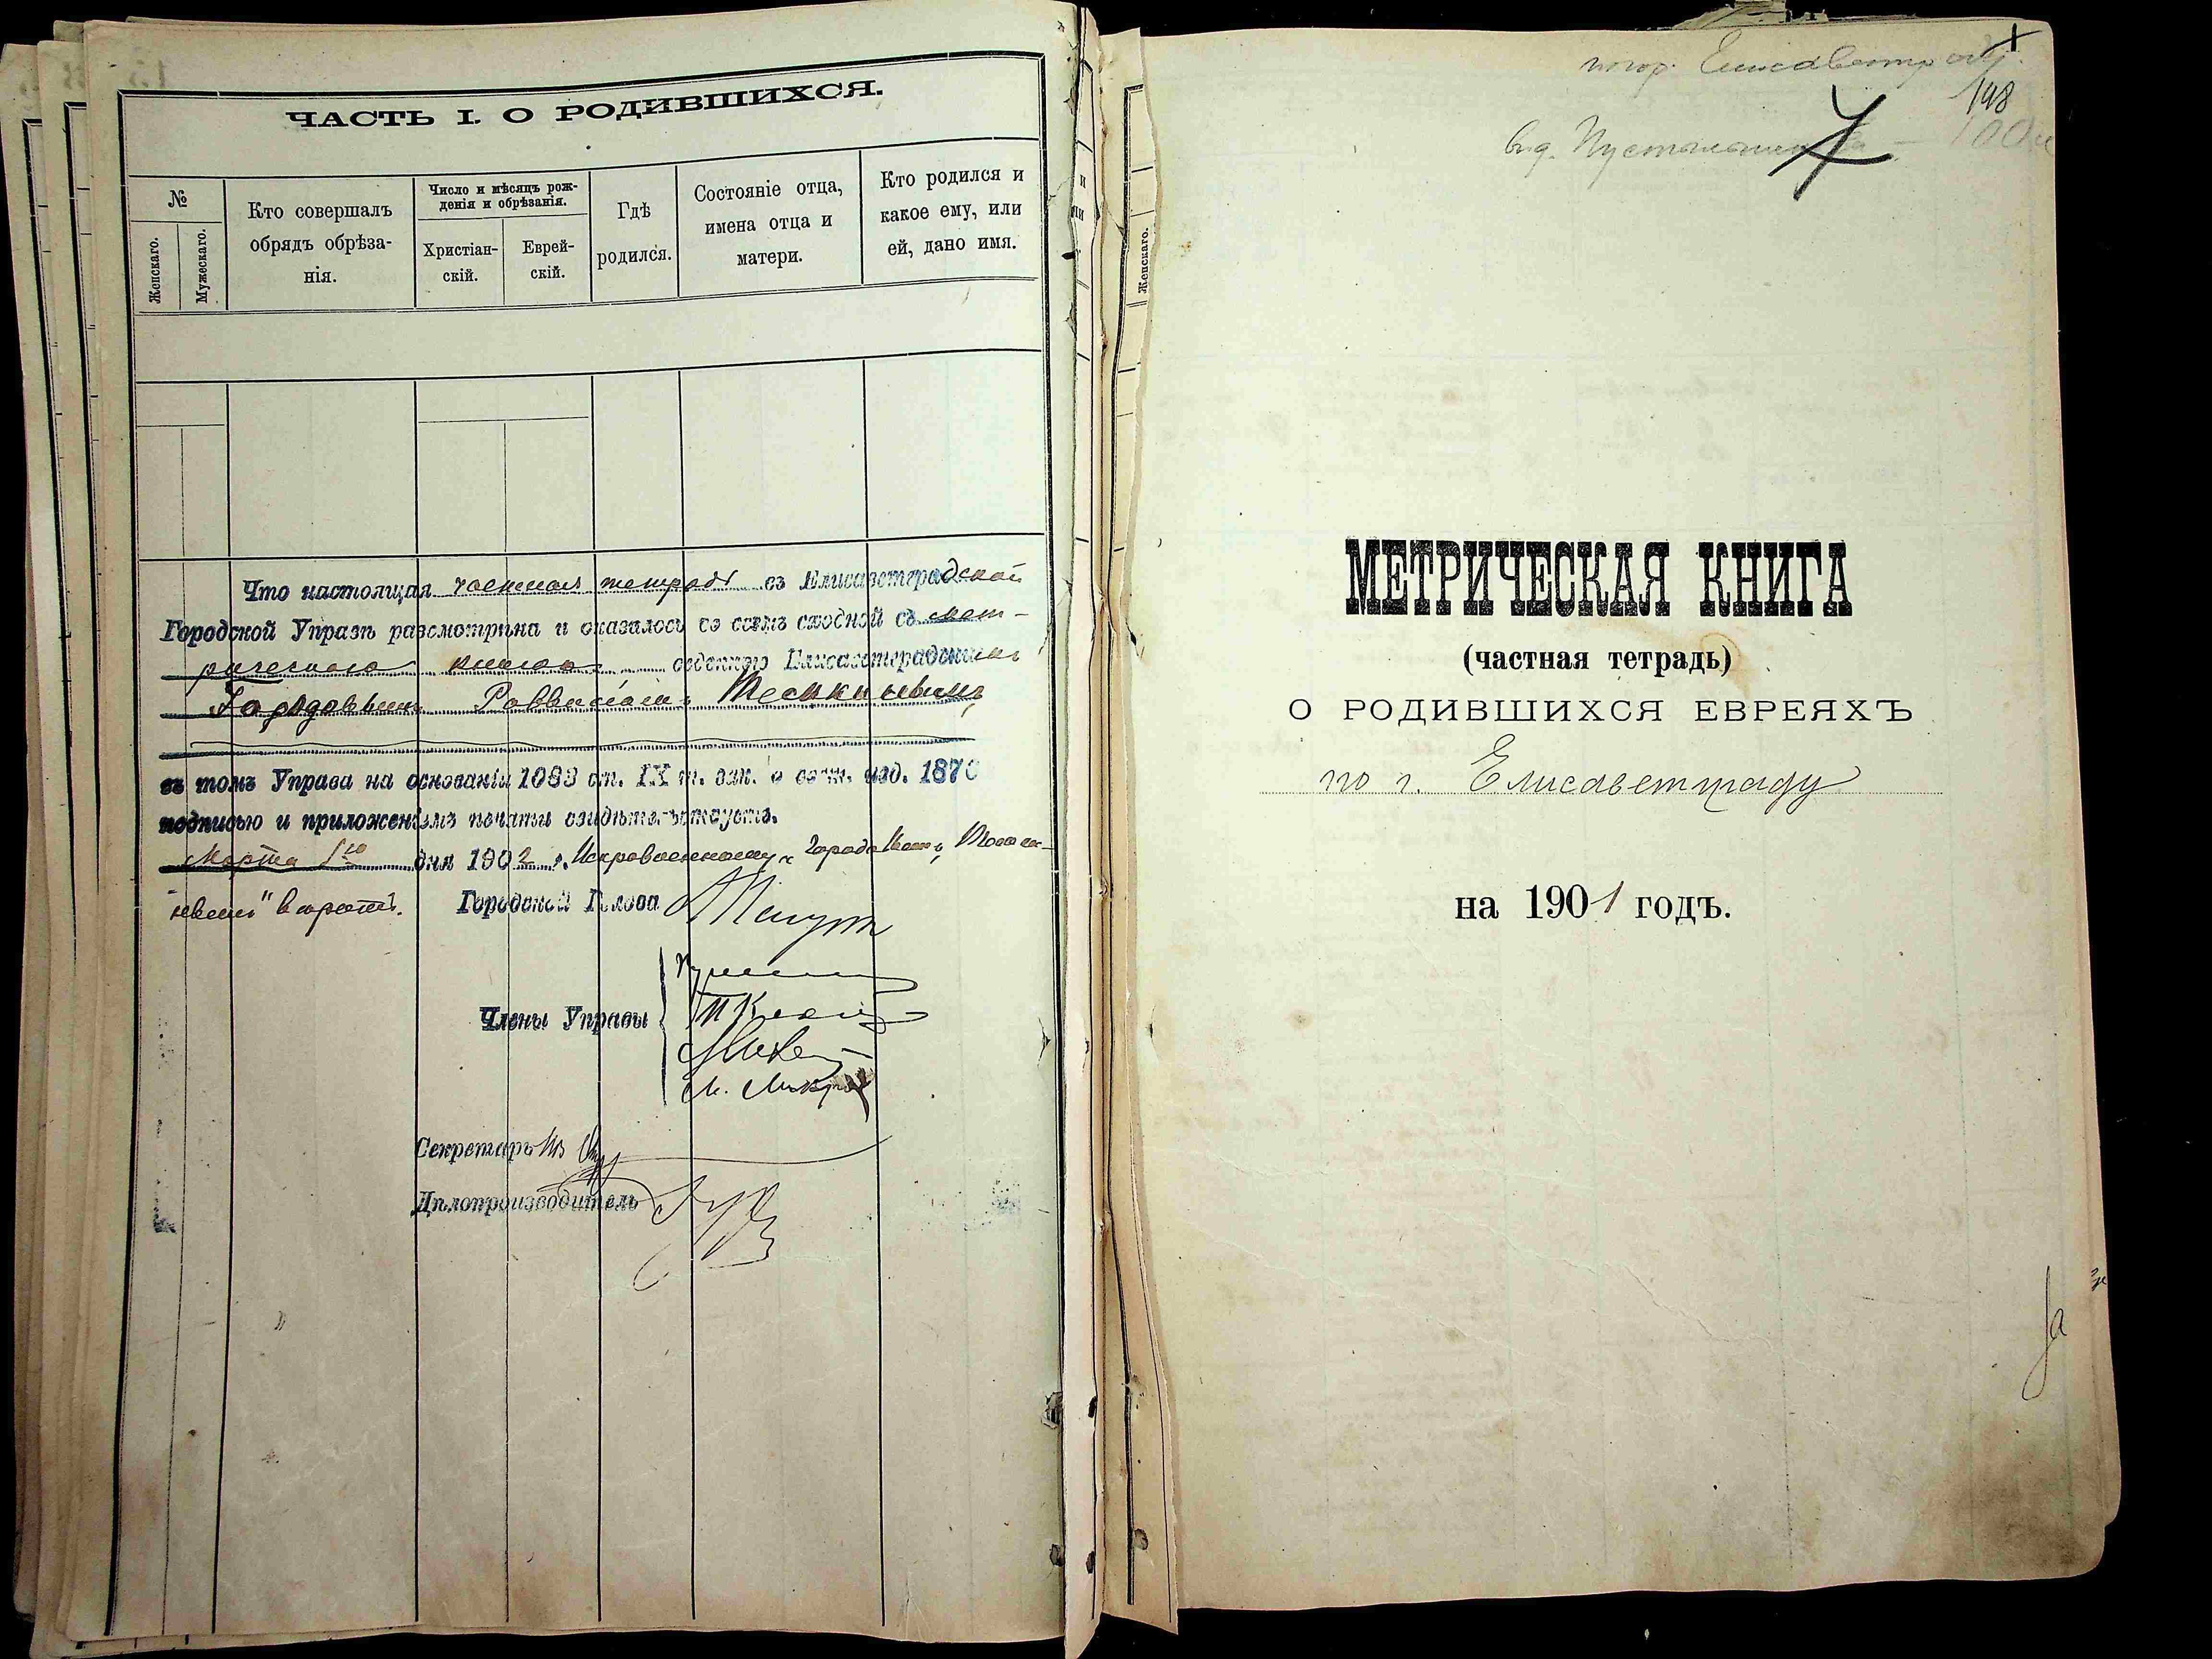 ЧАСТЬ I. О РОДИВШИХСЯ.
№
Женскаго.
Мужескаго.
Кто совершалъ
обрядъ обрѣза-
нія.
Число и мѣсяцъ рож-
денія и обрѣзанія.
Христіан-
скій.
Еврей-
скій.
Гдѣ
родился.
Состояніе отца,
имена отца и
матери.
Кто родился и
какое ему, или
ей, дано имя.
Что настоящая частная тетрадь въ Елисаветградской
Городской Управѣ разсмотрѣна и оказалось во всемъ сходной съ мет-
рическою книгою веденною Елисаветградскимъ
Городовымъ Раввиномъ
въ томъ Управа на основаніи 1083 ст. IX т. зак. о сост. изд. 1876
подписью и приложеніемъ печати свидѣтельствуетъ.
Марта 1го дня 1902 г.
вѣрить.
Городской Голова
Члены Управы
Секретарь
Дѣлопроизводитель
Женскаго.
148
МЕТРИЧЕСКАЯ КНИГА
(частная тетрадь)
О РОДИВШИХСЯ ЕВРЕЯХЪ
по г. Елисаветграду
на 1901 годъ.